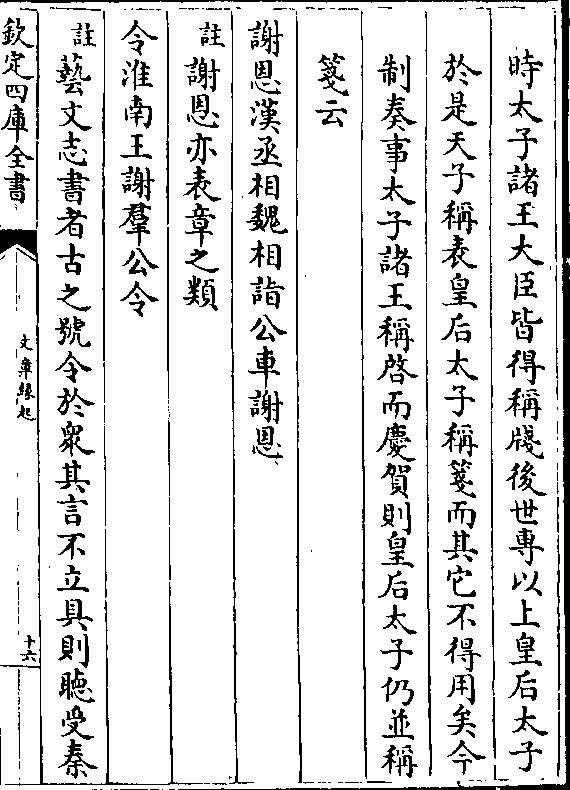 時太子諸王大臣皆得稱牋後世專以上皇后太子
於是天子稱表皇后太子稱箋而其它不得用矣今
制奏事太子諸王稱啓而慶賀則皇后太子仍並稱
箋云
謝恩漢丞相魏相詣公車謝恩
註謝恩亦表章之類
令淮南王謝羣公令
註藝文志書者古之號令於衆其言不立具則聴受秦
欽定四庫全書
文章緣起
十六